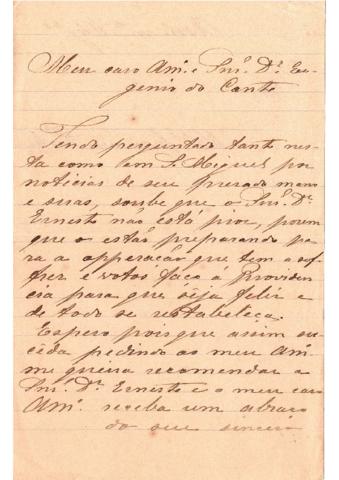 Meu caro Am.º e Snr. Dr. Eu-
genio do Canto
Tendo perguntado tanto nes-
ta como em S. Miguel por
noticias de seu presado mano
e suas, soube que o Snr. Dr.
Ernesto não está pior, porem
que o estão preparando pa-
ra a opperacão que tem a sof-
frer e votos faço á Providen-
cia para que seja feliz e
de todo se restabeleça.
Espero pois que assim su-
ceda pedindo ao meu Am.º
me queira recomendar a
Snr. Dr. Ernesto e o meu caro
Am.º receba um abraço
do seu sincero